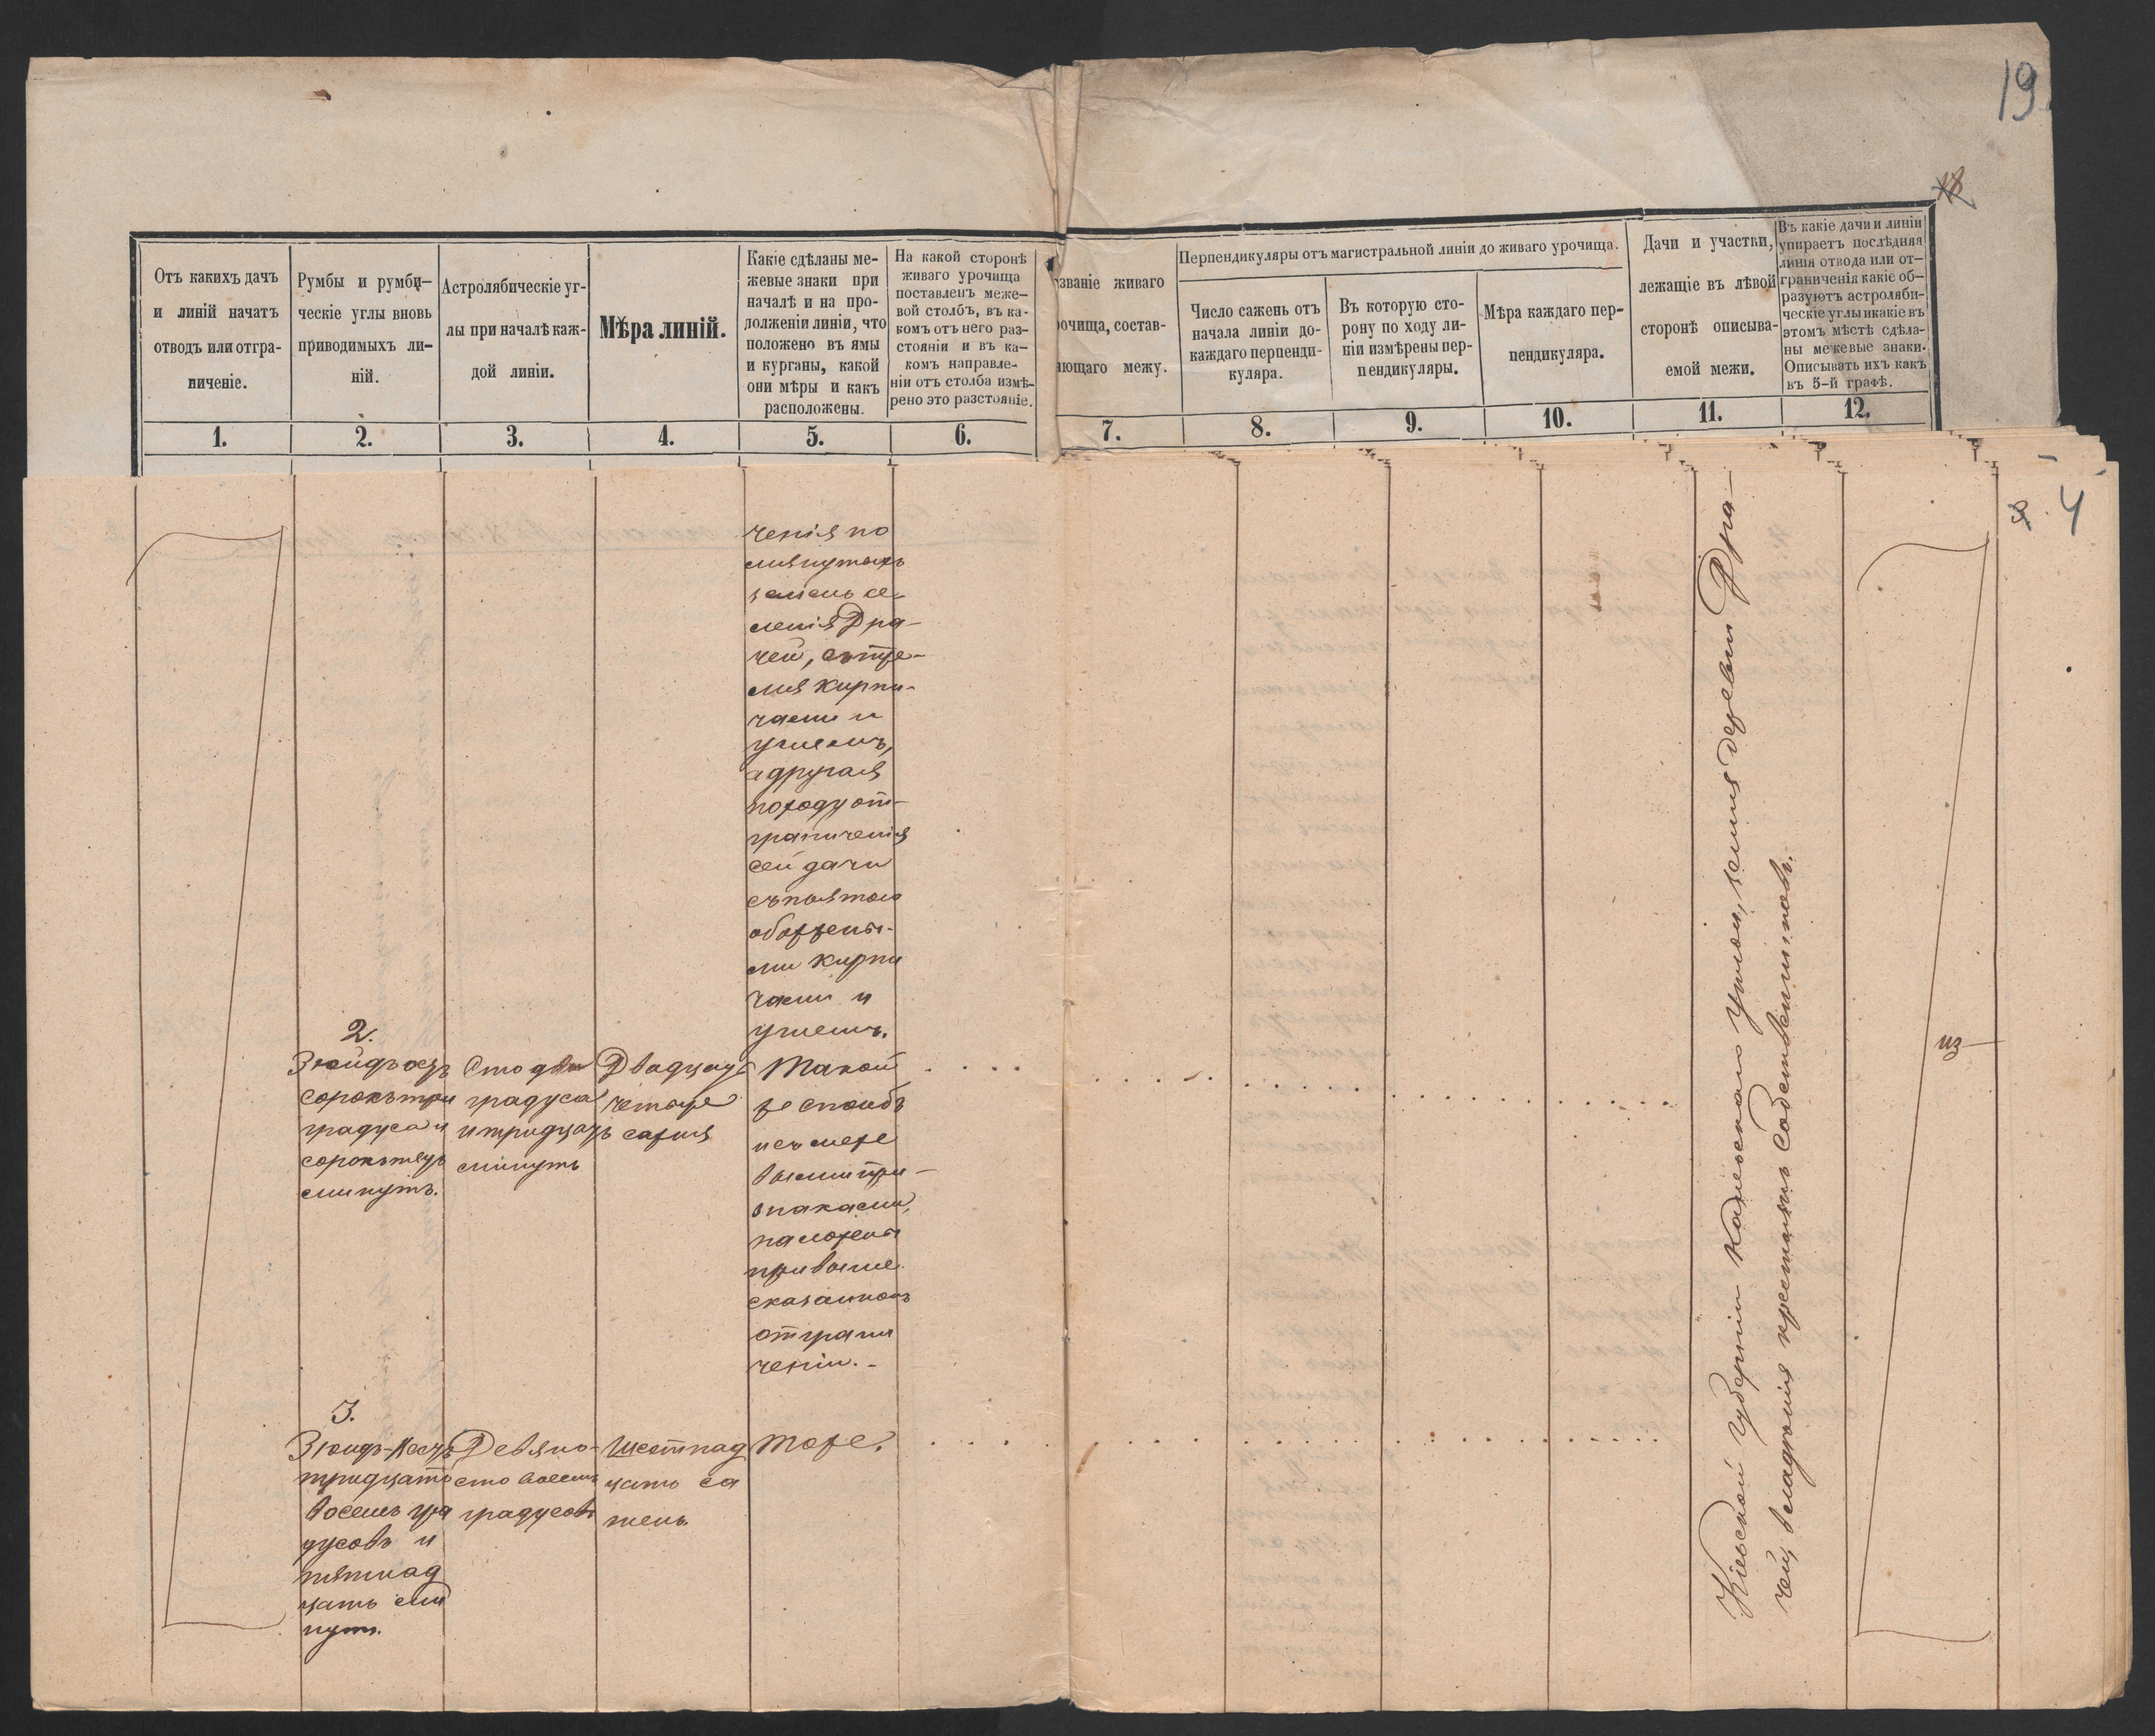 19.
18
Отъ какихъ дачъ
и линій начатъ
отводъ или отгра-
ниченіе.
Румбы и румби-
ческіе углы вновь
приводимыхъ ли-
ній.
Астролябическіе уг-
лы при началѣ каж-
дой линіи.
Мѣра линій.
Какіе сдѣланы ме-
жевые знаки при
началѣ и на про-
долженіи линіи, что
положено въ ямы
и курганы, какой
они мѣры и какъ
расположены.
На какой сторонѣ
живаго урочища
поставленъ меже-
вой столбъ, въ ка-
комъ отъ него раз-
стояніи и въ ка-
комъ направле-
ніи отъ столба измѣ-
рено это разстояніе.
званіе живаго
очища, состав-
яющаго межу.
Перпендикуляры отъ магистральной линіи до живаго урочища.
Число сажень отъ
начала линіи до
каждаго перпенди-
куляра.
Въ которую сто-
рону по ходу ли-
ніи измѣрены пер-
пендикуляры.
Мѣра каждаго пер-
пендикуляра.
Дачи и участки,
лежащіе въ лѣвой
сторонѣ описыва-
емой межи.
Въ какіе дачи и линіи
упираетъ послѣдняя
линія отвода или от-
граниченія какіе об-
разуютъ астроляби-
ческіе углы и какіе въ
этомъ мѣстѣ сдѣла-
ны межевые знаки.
Описывать ихъ какъ
въ 5-й графѣ.
1. 2. 3. 4. 5. 6. 7. 8. 9. 10. 11. 12.
4
ченія по
мянутыхъ
земель се-
ленія Дра-
чей, съ тре-
мя кирпи-
чами и
углемъ,
а другая
по ходу от-
граниченія
сей дачи
съ пятью
обожжены-
ми кирпи
чами и
углемъ.
2.
Зюйдъ остъ
сорокъ три
градуса и
сорокъ пять
минутъ.
Сто два
градуса
и тридцать
минутъ
Двадцать
четыре
сажня
Такой
же столбъ
и съ меже
выми при-
знаками,
положены
при выше
сказанномъ
отграни
ченіи.-
3.
Зюидъ-Вестъ
тридцать
восемь гра
дусовъ и
пятнад
цать ми
нутъ.
Девяно-
сто восемь
градусовъ
Шестнад
цать са
жень
Тоже.
Кіевской губерніи Каневскаго уѣзда, земля деревни Дра-
чей, владѣнія крестьянъ собственниковъ.
из